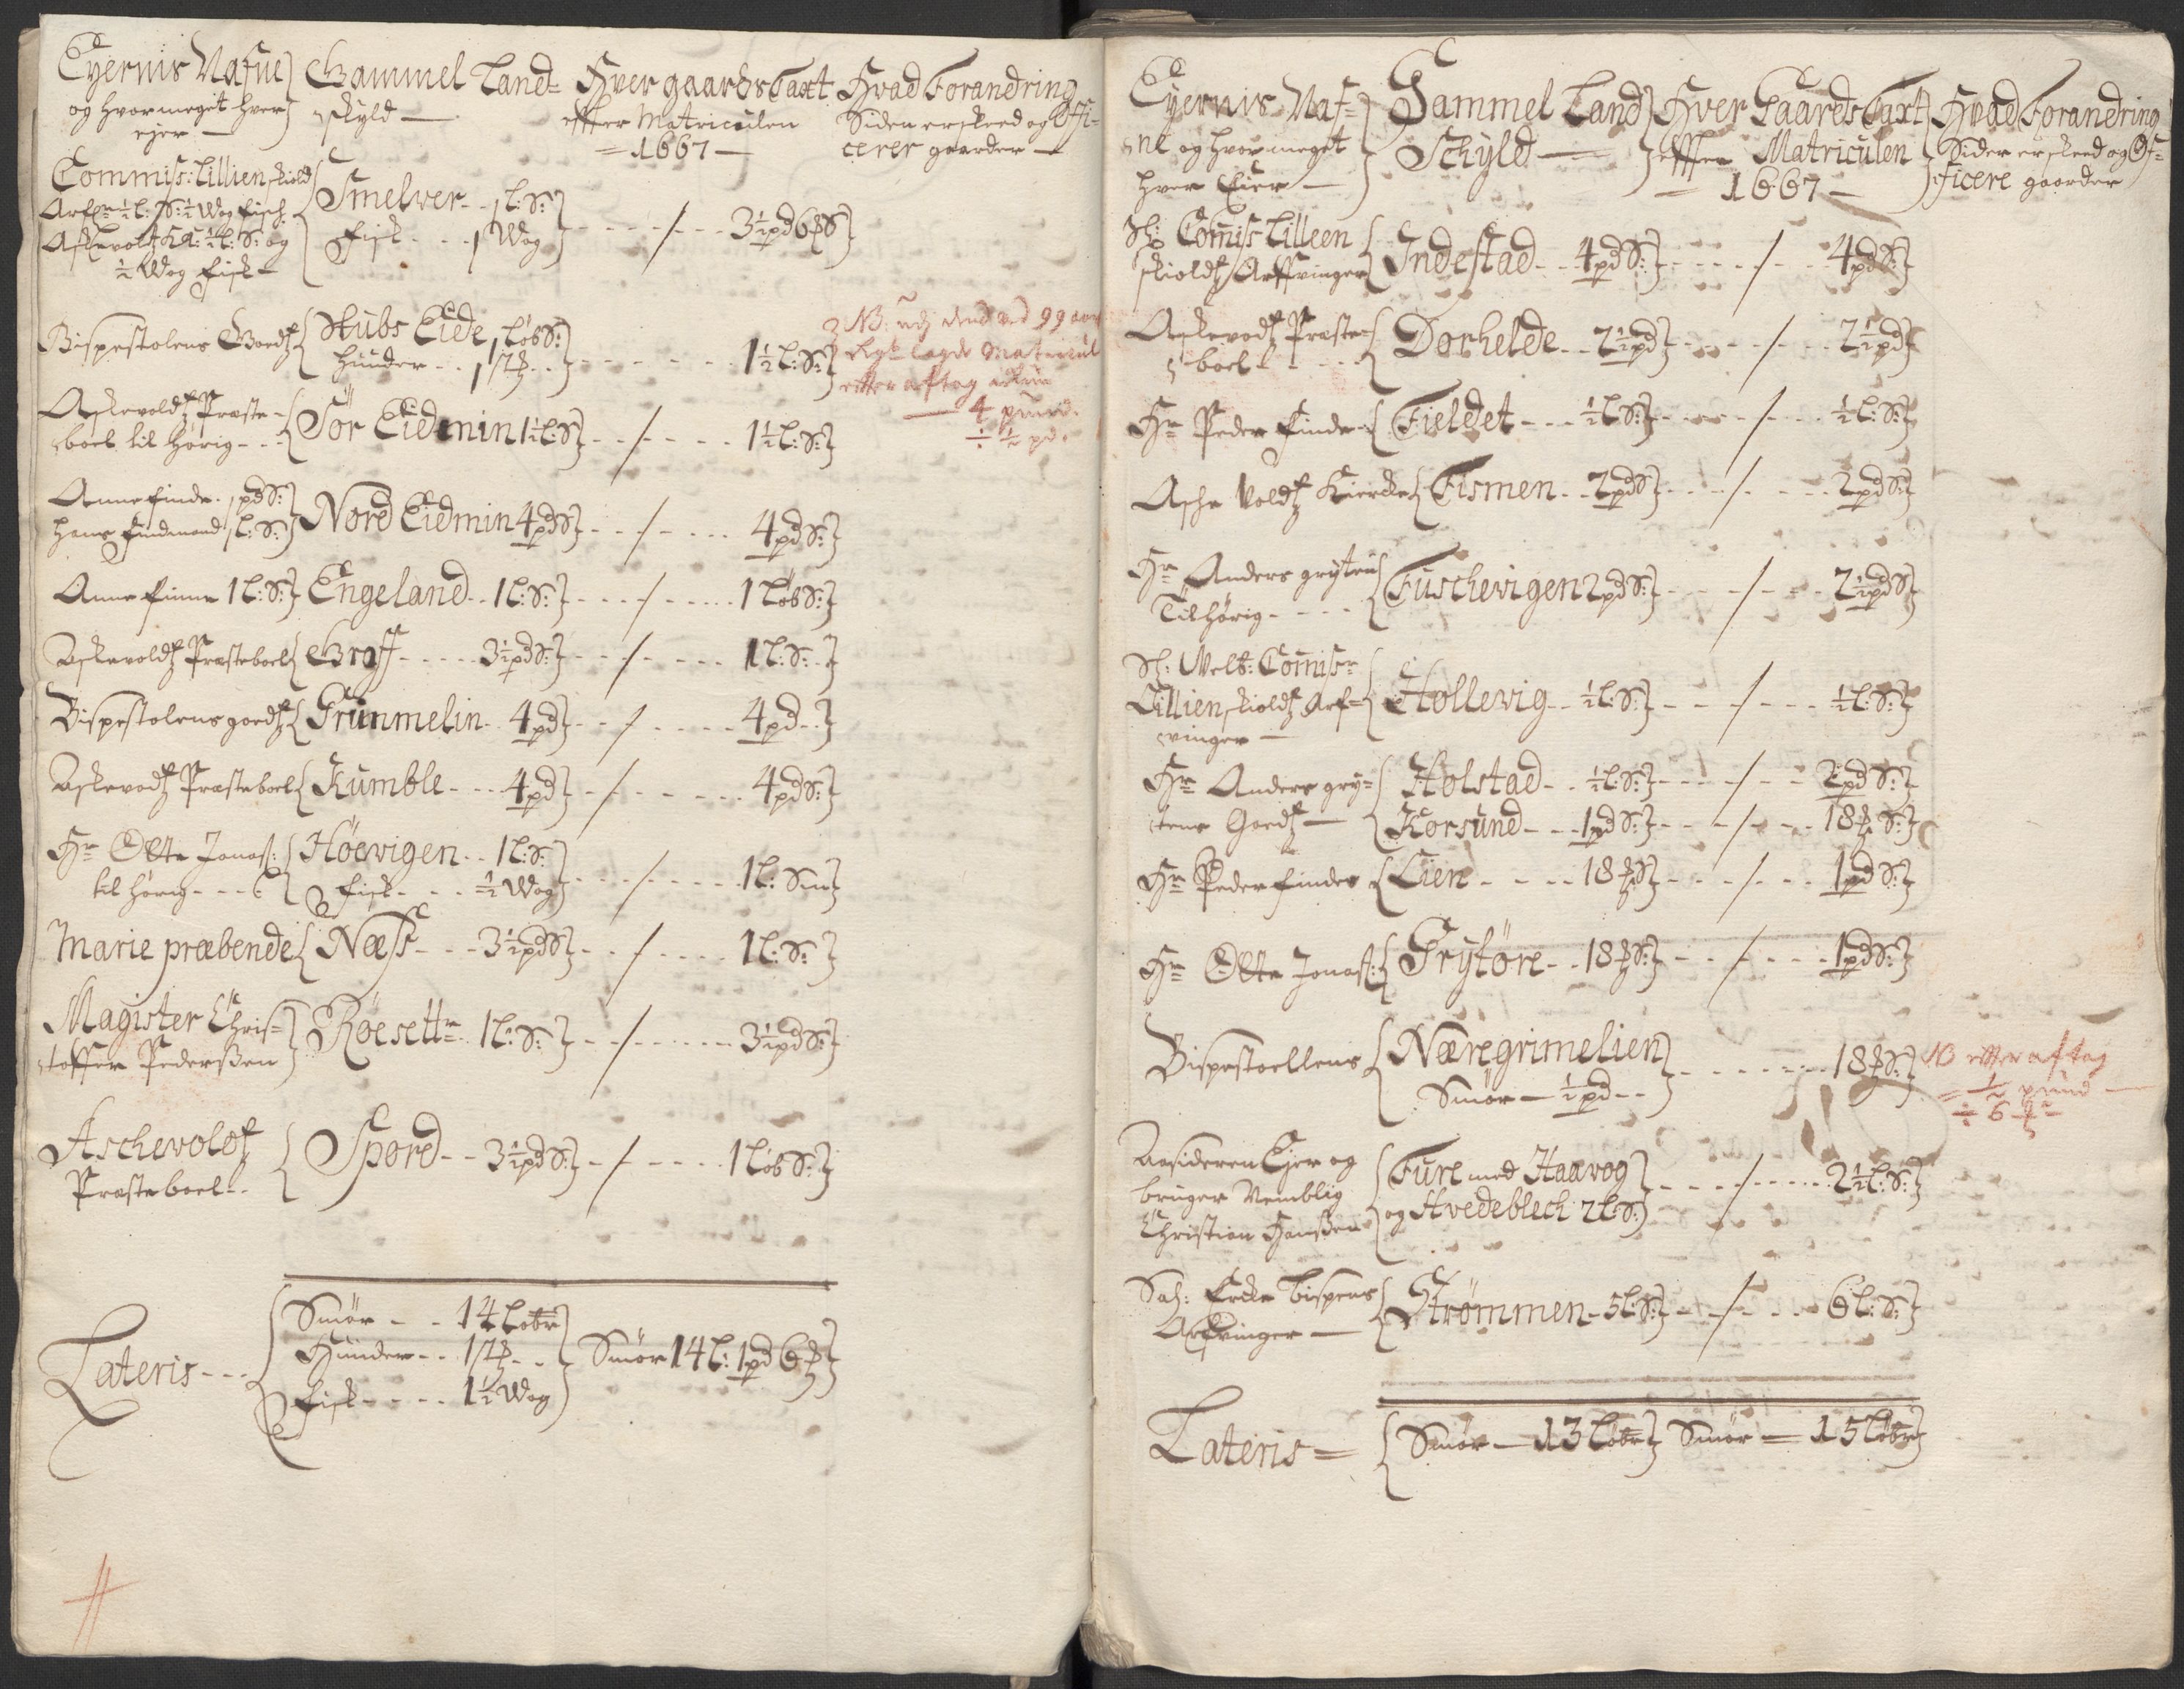 Eyernis Nafne
og hvor meget hver
ejer
Gammel Land-
skyld
Hver gaards Taxt
effter Matriculen
1667
Hvad Forandring
Siden er skeed og Offi-
cerer gaarder
Commiss: Lillienskiold
Arf: ½ l: S: ½ Wog fisch
Askevold Kr: ½ l: S: og
½ Wog fisk
Smelver - - 1 l: S:
fisk - - - 1 Wog
3½ pd 6 S
Bispestolens Goedtz
Stubs Eide 1 løb S:
hunder - - 1 stk - -
1½ l: S:
NB: udj dend ved 99 aar
lagde Matricul
effter aftog
4 pund.
÷ ½ pd.
Askevoldtz Præste-
boel til hørig - - -
Sör Eidmin 1½ l: S
1½ l: S:
Anne finde. 1 pd S:
hans findmand 1 l: S:
Nord Eidmin 4 pd S
4 pd S:
Anne finne 1 l: S:
Engeland - - 1 l: S:
1 løb S:
Askevoldtz Præsteboel
Graff - - - - 3½ pd S:
1 l: S: -
Bispestolens goedtz
Grünmelin - 4 pd
4 pd - -
Askevodtz Præsteboel
Kumble - - - 4 pd
4 pd S:
Hr Otte Jonas:
til hörig - - -
Höevigen - - 1 l: S:
fisk - - - ½ Wog
1 l: Sm
Marie præbende
Næss - - - 3½ pd S
1 l: S:
Magister Chris-
toffer Pederssen
Röesettr - 1 l: S:
3½ pd S:
Aschevoldtz
Præsteboel - -
Spord - - 3½ pd S:
1 løb S:
Lateris - - -
Smör - - - 14 Løbr
Hunder - - 1 stk - -
fisk - - - - 1½ Wog
Smör 14 l: 1 pd 6
Eyernis Naf-
ne og hvor meget
hver Eier
Gammel Land
Schyld
Hver Gaards Taxt
efter Matriculen
1667
Hvad Forandring
Siden er skeed og Of-
ficere gaarder
Sl: Comiss Lilleen
skioldtz Arffvinger
Indestad - - 4 pd S:
4 pd S:
Askevodtz Præste-
boel - - - -
Dorhelde - - 2½ pd
2½ pd
Hr Peder finde
Fieldet - - - ½ l: S:
½ l: S:
Asche Voldtz Kiercke
Fismen - - 2 pd S
2 pd S:
Hr Anders grytens
Tilhörig - - - -
Fuschevigen 2 pd S:
2½ pd S
Sl: Welb: Comisr
Lillienskioldtz Arf-
vinger
Hollevig - - ½ l: S:
½ l: S:
Hr Anders gry-
tens Goedtz
Holstad - - ½ l: S:
2 pd S:
Korsund - - - 1 pd S:
18 S:
Hr Peder finder
Lien - - - - 18 S
1 pd S:
Hr Otte Jonas:
Grytöre - - 18 S:
1 pd S:
Bispestoellens
Næregrimelien
Smör - ½ pd - -
18 S:
NB effter aftog
½ pund
÷ 6
Aasideren Ejer og
bruger Vemblig
Christian Hanssen
Fure med Haavog
og Hvedeblech 2 l: S:
2½ l: S:
Sal: Ercke Bispens
Arfvinger
Strømmen - 5 l: S:
6 l: S:
Lateris =
Smör - 13 Løbr
Smör = 15 Løbr